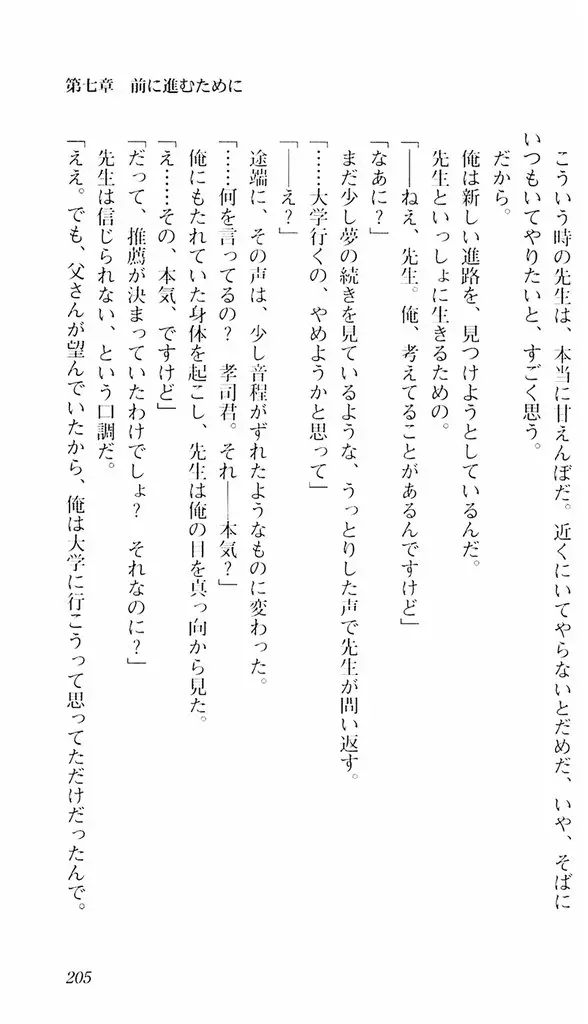 第七章　前に進むために
　こういう時の先生は、本当に甘えんぼだ。近くにいてやらないとだめだ、いや、そばに
いつもいてやりたいと、すごく思う。
　だから。
　俺は新しい進路を、見つけようとしているんだ。
　先生といっしょに生きるための。
「――ねえ、先生。俺、考えてることがあるんですけど」
「なあに？」
　まだ少し夢の続きを見ているような、うっとりした声で先生が問い返す。
「……大学行くの、やめようかと思って」
「――え？」
　途端に、その声は、少し音程がずれたようなものに変わった。
「……何を言ってるの？　孝司君。それ――本気？」
　俺にもたれていた身体を起こし、先生は俺の目を真っ向から見た。
「え……その、本気、ですけど」
「だって、推薦が決まっていたわけでしょ？　それなのに？」
　先生は信じられない、という口調だ。
「ええ。でも、父さんが望んでいたから、俺は大学に行こうって思ってただけだったんで。
205